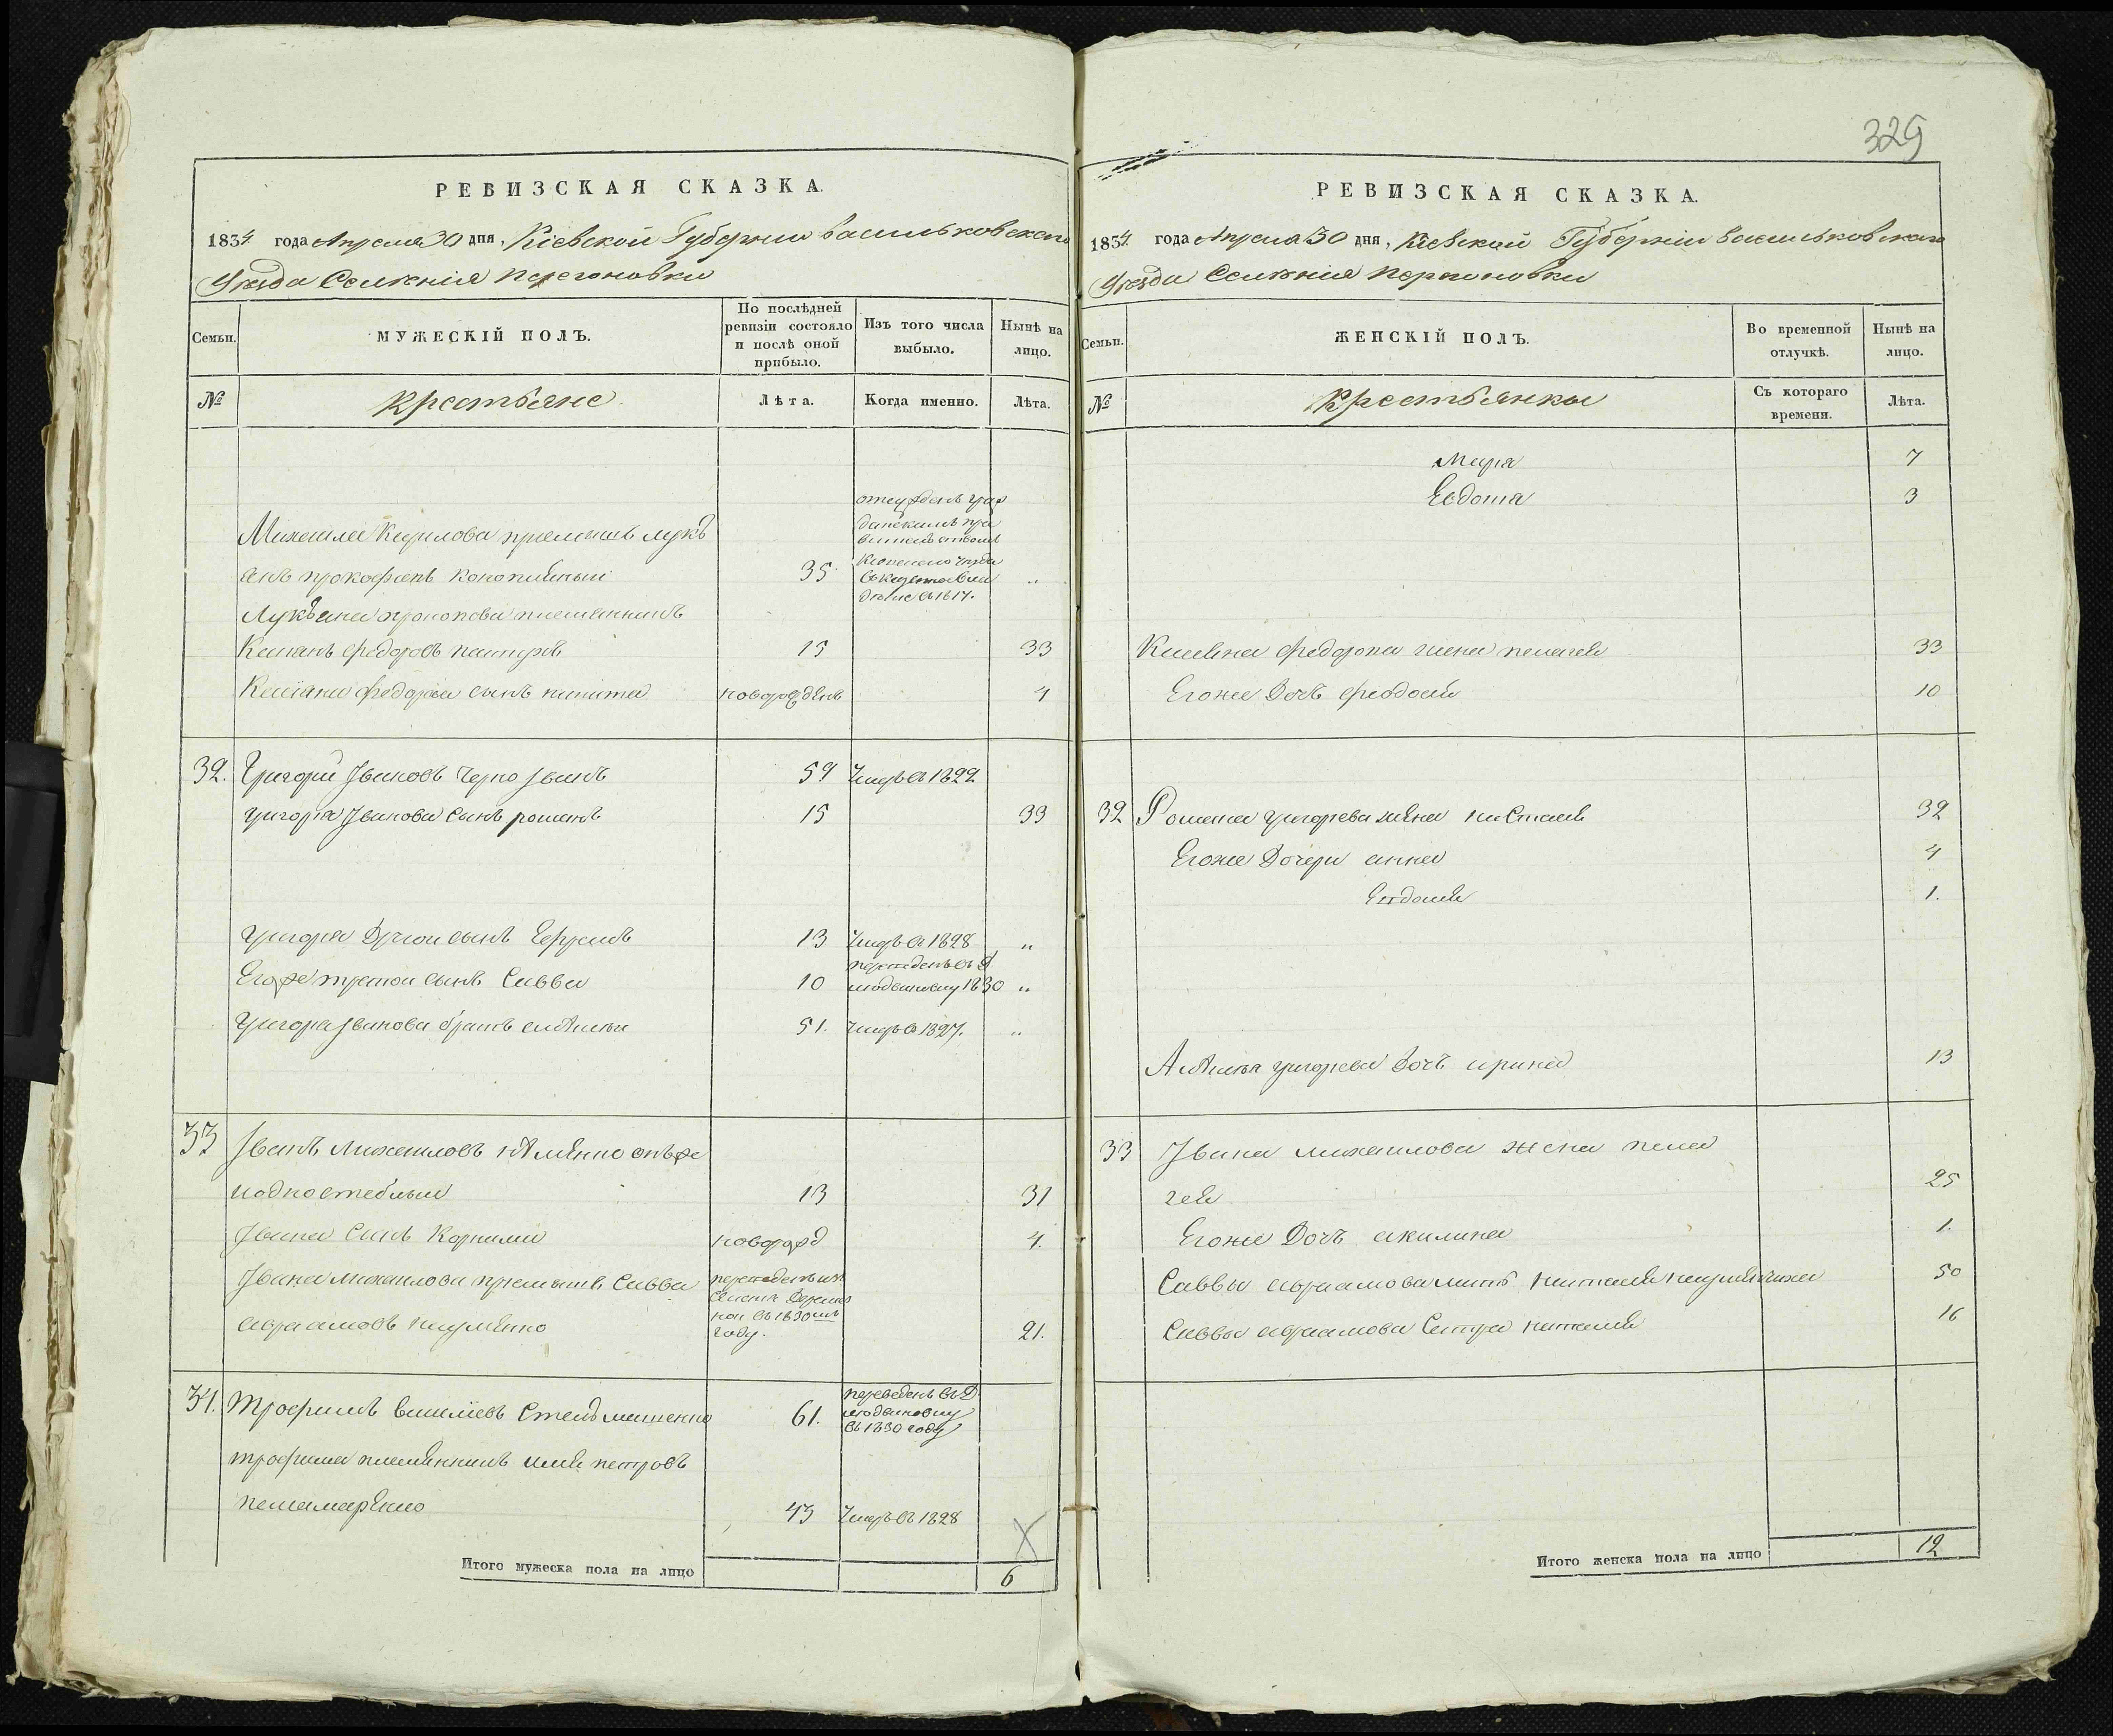 329
РЕВИЗСКАЯ СКАЗКА.
1834 года Апреля 30 дня, Кіевской Губерніи Васильковскаго
Уезда Селенія Перегоновки
Семьи.
МУЖЕСКІЙ ПОЛЪ.
По послѣдней ревизіи состояло и послѣ оной прибыло.
Изъ того числа выбыло.
Нынѣ на лицо.
№
Крестьяне
Лѣта.
Когда именно.
Лѣта.
Михайла Кирилова приемышъ Лукъ
янъ Прокофіевъ 35 "
Лукьяна племянникъ
Касіанъ Федоровъ 15 33
Касіана Федорова сынъ Никита новорожденъ 4
32. Григорій Івановъ Черно Іванъ 59 Умеръ въ 1822
Григорія Іванова сынъ Романъ 15 33
Григорія Другой сынъ Ефремъ 13 Умеръ въ 1828 "
Егоже третой сынъ Савва 10 переведенъ въ Д. 1830 "
Григорія Іванова братъ 51. Умеръ в 1827. "
33 Іванъ Михаиловъ онъже
13 31
Івана Сынъ Корнили новорожд 4.
Івана Михаилова приемышъ Савва
Авраамовъ Науменко въ 1830 году. 21.
34. Трофимъ Василіевъ Стельмашенко 61. переведенъ въ Д.
въ 1830 году
Трофима племянникъ Илія Петровъ
Паламаренко 43 Умеръ въ 1828
Итого мужеска пола на лицо 6
РЕВИЗСКАЯ СКАЗКА.
1834 года Апреля 30 дня, Кіевской Губерніи Васильковскаго
Уезда Селенія Перегоновки
Семьи.
ЖЕНСКІЙ ПОЛЪ.
Во временной отлучкѣ.
Нынѣ на лицо.
№
Крестьянки
Съ котораго времени.
Лѣта.
Марія 7
Евдокія 3
Касіяна Федорова жена Пелагея 33
Егоже Дочъ Феодосія 10
32 Романа Григорева жена Настасія 32
Егоже Дочери Анна 4
Евдокія 1.
Григорева Дочъ Ирина 13
33 Івана Михаилова жена Пела
гея 25
Егоже Дочъ Акилина 1.
Саввы Авраамова мать Наталія 50
Саввы Авраамова Сестра Наталія 16
Итого женска пола на лицо 12